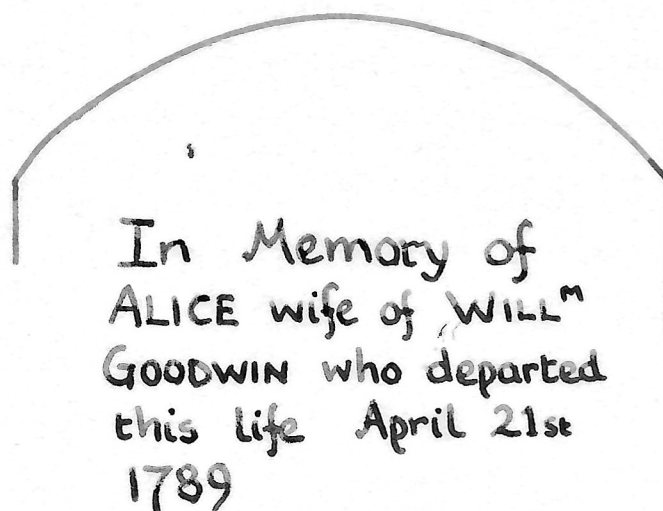 In Memory of
ALICE wife of WILLᵐ
GOODWIN who departed
this life April 21st
1789